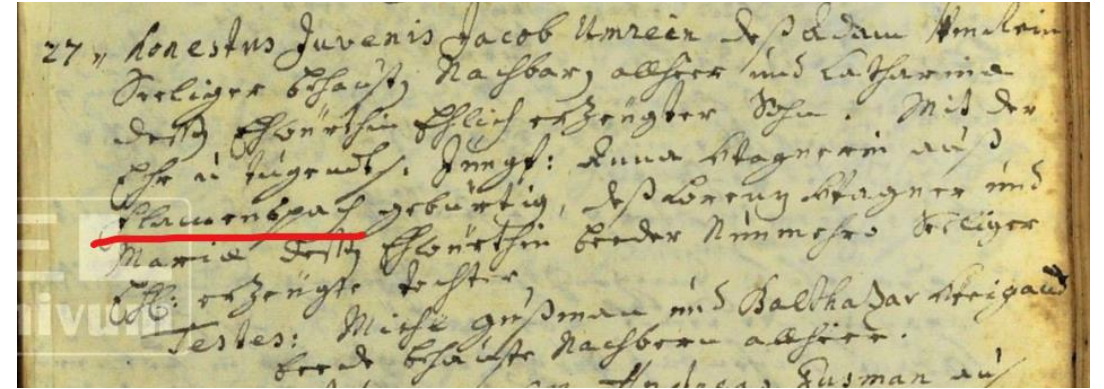 27 " Honestus Juvenis Jacob Umrein deß Adam Umrein
Seeliger behaust Nachbarn allhier und Catharina
deßen Ehewürthin Ehlich erzeugter Sohn. Mit der
Ehr u tugendts. Jungf: Anna Wagnerin auß
gebürtig, deß Lorentz Wagner und
Maria deßen Ehewürthin beeder Nunmehro Seeliger
Ehl: erzeugte tochter,
Testes: Michl gußman und Balthaßar Weigand
beede behauste Nachbern allhier.
Andreas Gusman auß